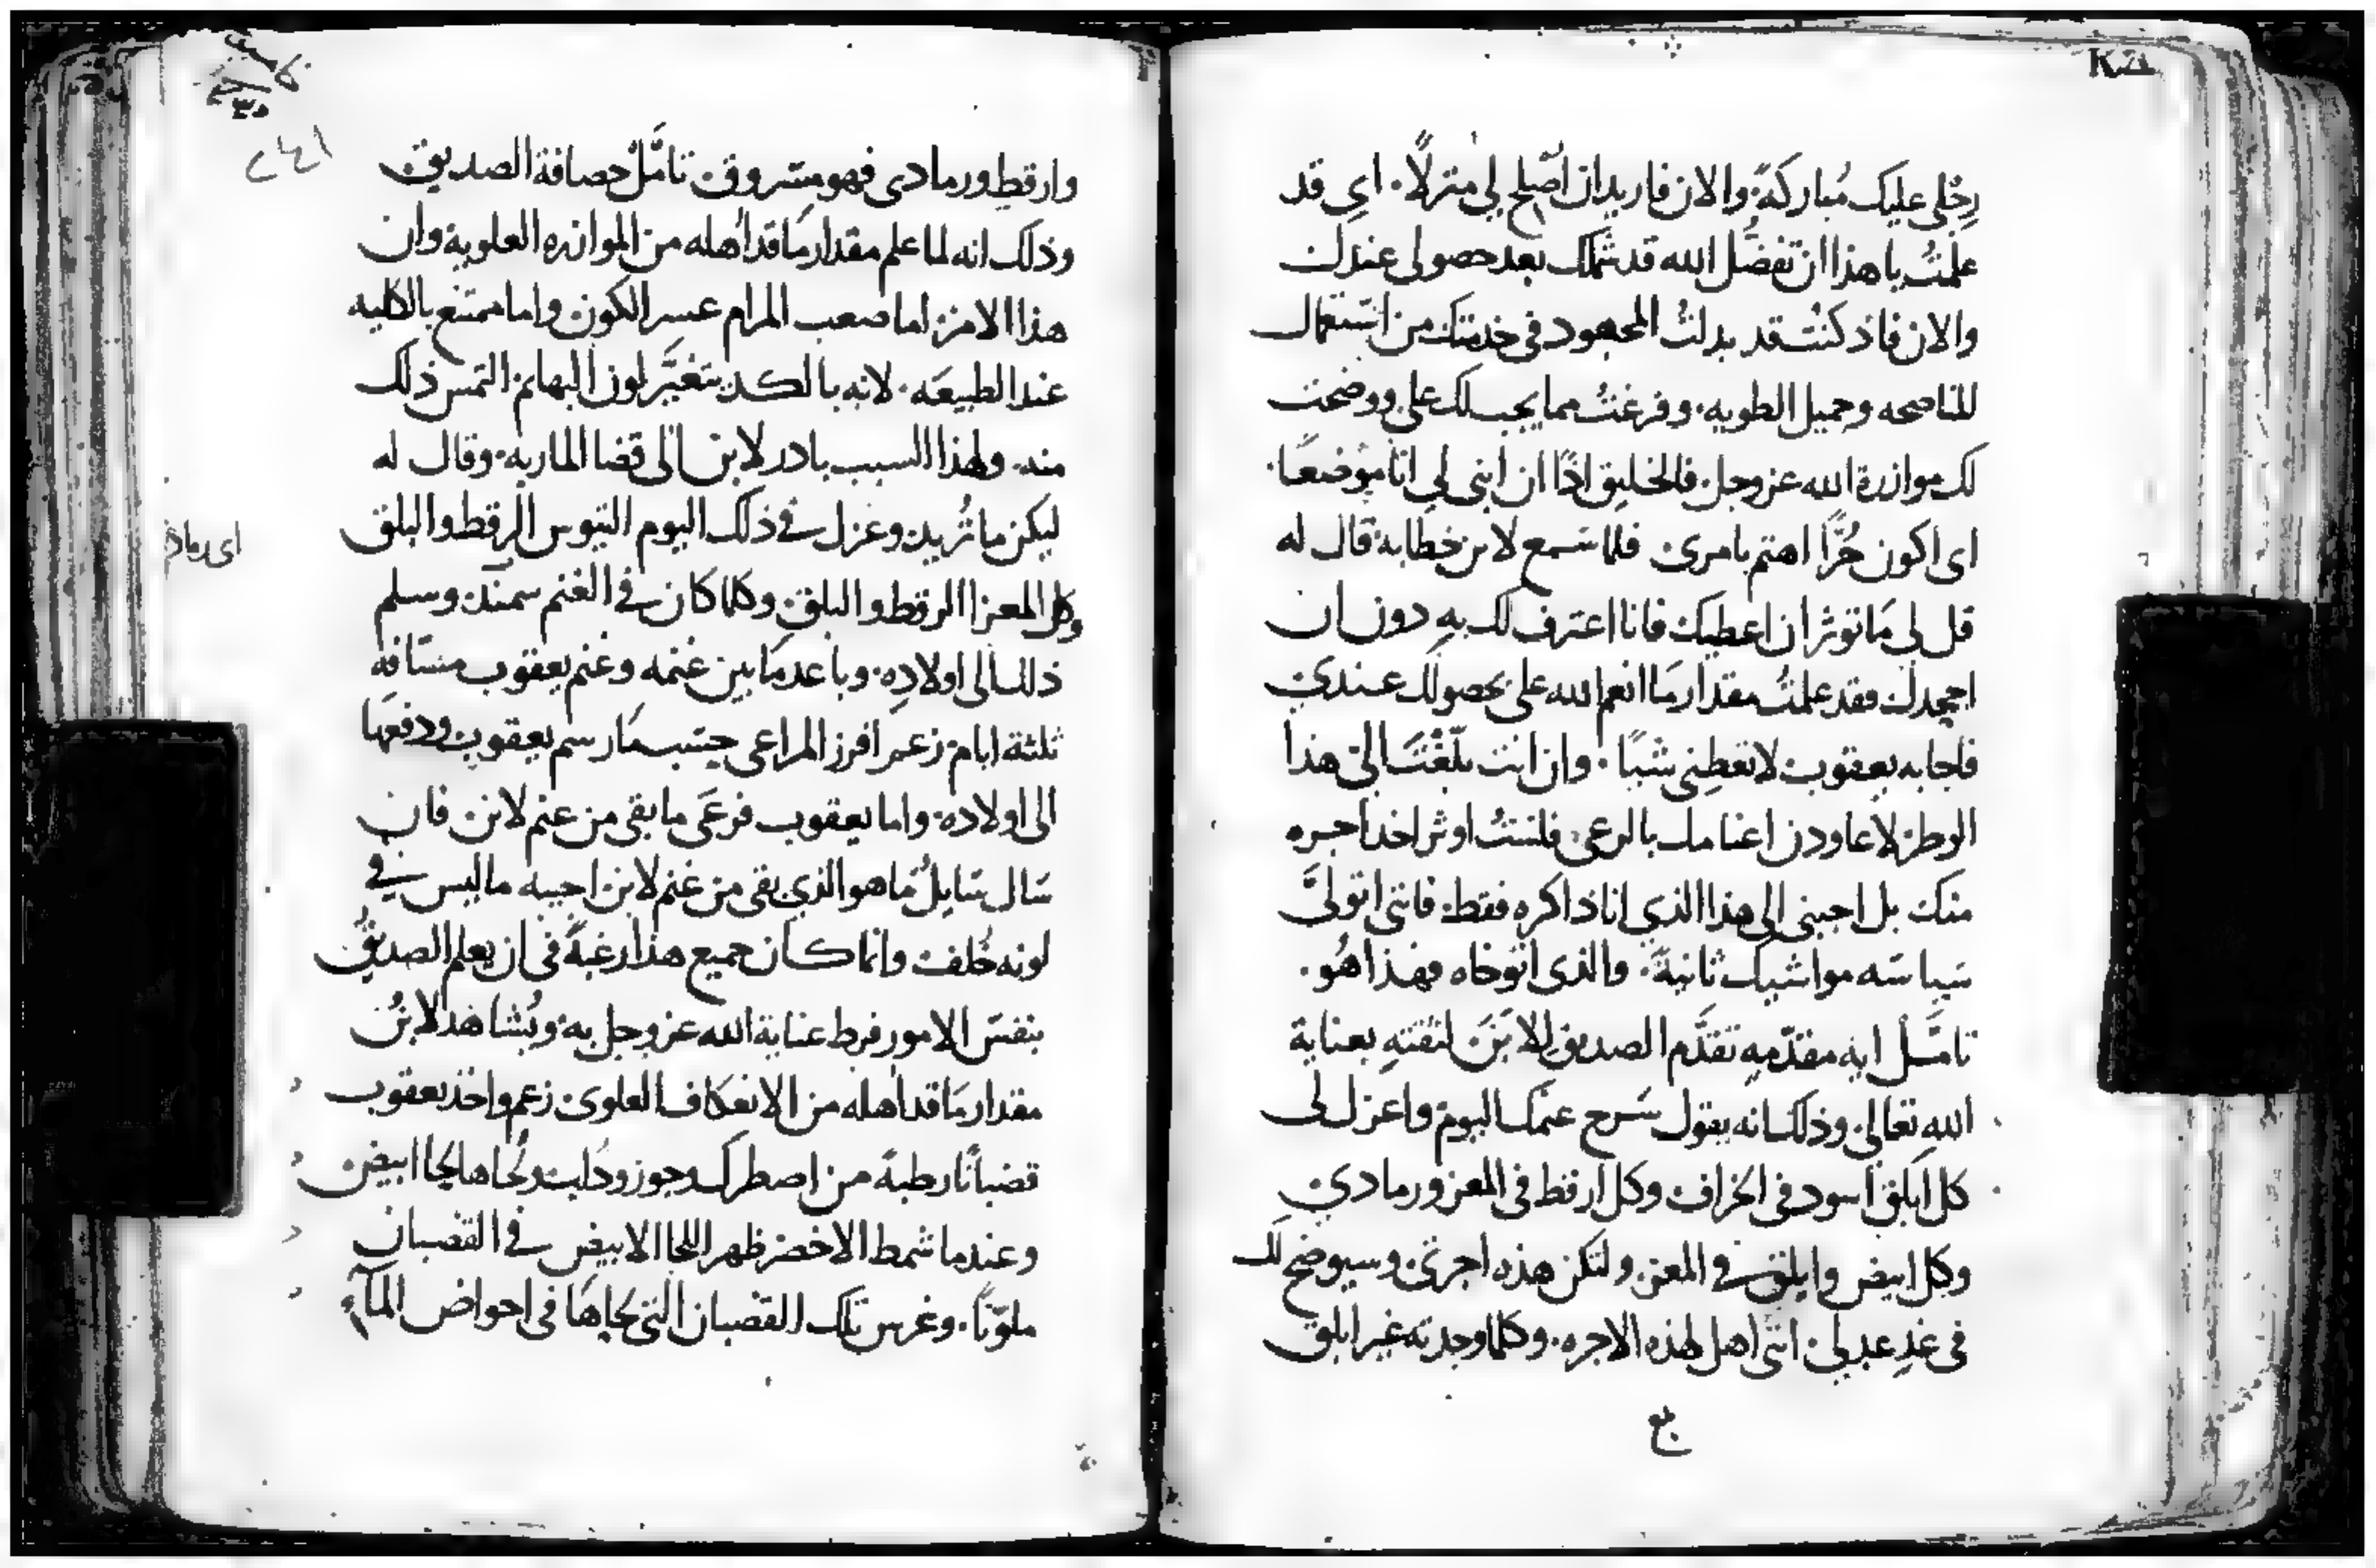 رجلي عليك مُباركةً. والان فاريد ان اصلح لي منزلًا. اي قد
علمتُ يا هذا ان تفضُّل الله قد شملك بعد حصولى عندك
والان فاذ كنتُ قد بدلتُ المجهود في خدمتك من استعمال
المناصحه وجميل الطويه. وفرغتُ مما يجب لك على ووضحت
لك موازرة الله عز وجل. فالخليق اذًا ان ابنى لي انا موضعًا.
اى اكون حُرًّا اهتم بامرى فلما سمع لابن خطابه قال له
قل لى مَا توثر ان اعطيك فانا اعترف لك به دون ان
اجحدك فقد علمتُ مقدار مَا انعم الله على بحصولك عندي
فاجابه يعقوب لا تعطنى شيًا. وان انت بلّغْتَ الى هذا
الوطر لاعاودن اغنامك بالرعى. فلستُ اوثر اخذ اجره
منك بل اجبنى الى هذا الذي انا ذاكره فقط. فانني اتولَّى
سَياسَه مواشيك ثانيةً. والذى اتوخاه فهذا هُو.
تامَّل ايه مقدّمه تقدَّم الصديق للابَنَ لثقتهِ بعناية
اللهِ تعالى. وذلك انه يقول سَرح غنمك اليوم واعزل لى
كل ابلق اسود فى الخراف وكل ارقط فى المعز ورمادي
وكل ابيض وابلق في المعز. ولتكن هذه اجرتى. وسيوضح لك
فى غدِ عدلى. انني اهل لهذه الاجره. وكلما وجدته غير ابلق
بع
وارقط ورمادى فهو مسروق تامَّل حصافة الصديق
وذلك انه لما علم مقدار مَا قد اهله من الموازره العلوية وان
هذا الامر. اما صعب المرام عسر الكون. واما ممتنع بالكليه
عند الطبيعَه. لانه بالكد يتغيَّر لون البهايم. التمس ذلك
منه. ولهذا السبب بادر لابن الى قضا الماربه. وقال له
ليكن ما تُريد. وعزل في ذلك اليوم التيوس الرقط والبلق
وكل المعز الرقط والبلق. وكلما كان في الغنم سمند. وسلم
ذلك الى اولادِه. وباعد مَا بين غنمه وغنم يعقوب مسَافه
ثلثة ايام. زعم افرز المراعى حسب مَا رسم يعقوب ودفعهَا
الى اولاده. واما يعقوب فرعَى ما بقى من غنم لابن. فان
سَال سَايلٌ مَا هو الذي بقى من غنم لابن اجيبه ما ليس في
لونه خُلف. وانما كان جميع هذا رغبةً فى ان يعلم الصديقُ
بنفسَ الامور فرط عناية الله عز وجل به. ويُشاهد لابنُ
مقدار مَا قد اهله من الانعكاف العلوى. زعم واخذ يعقوب
قضبانًا رطبةً من اصطرك وجوز ودُلب. ولحاها لحا ابيض.
وعندما شمط الاخضر ظهر اللحا الابيض في القضبان
ملوّنًا. وغرس تلك القضبان التي لحاهَا فى احواض المآء